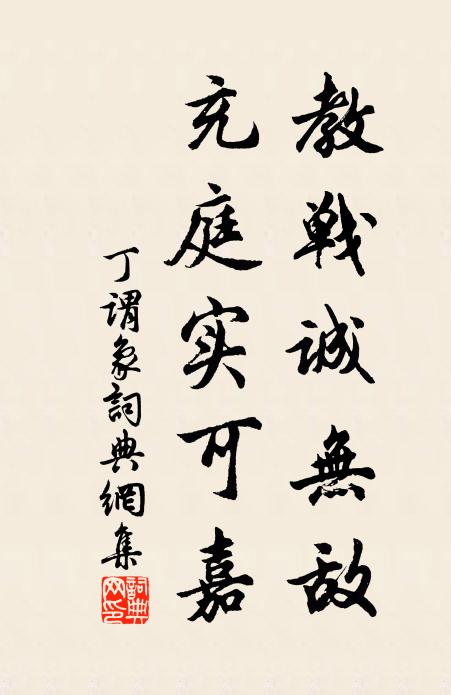 教戦誠無敌
充庭实可嘉
丁謂象詞典網集
詞典网印